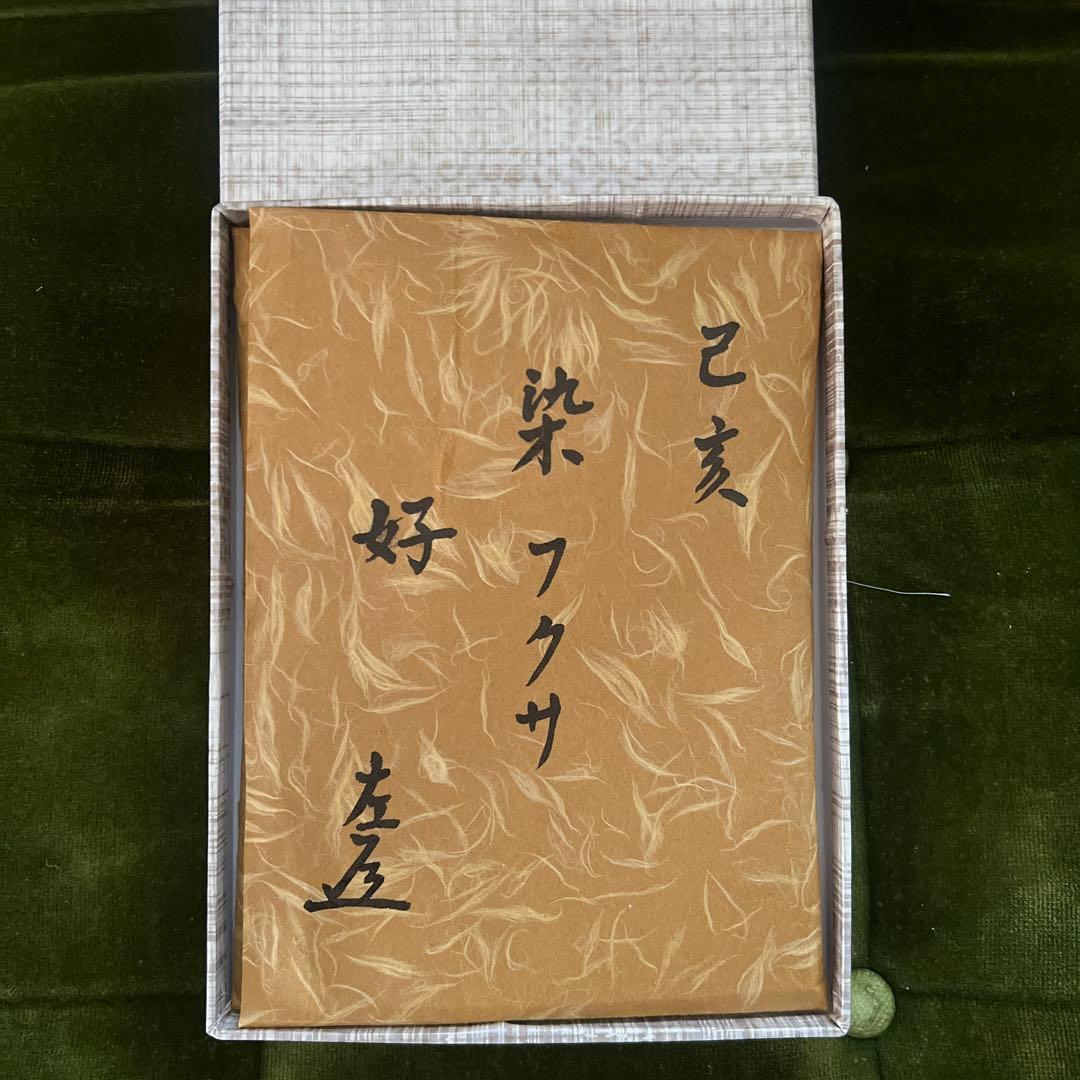 己亥
染フクサ
好 左